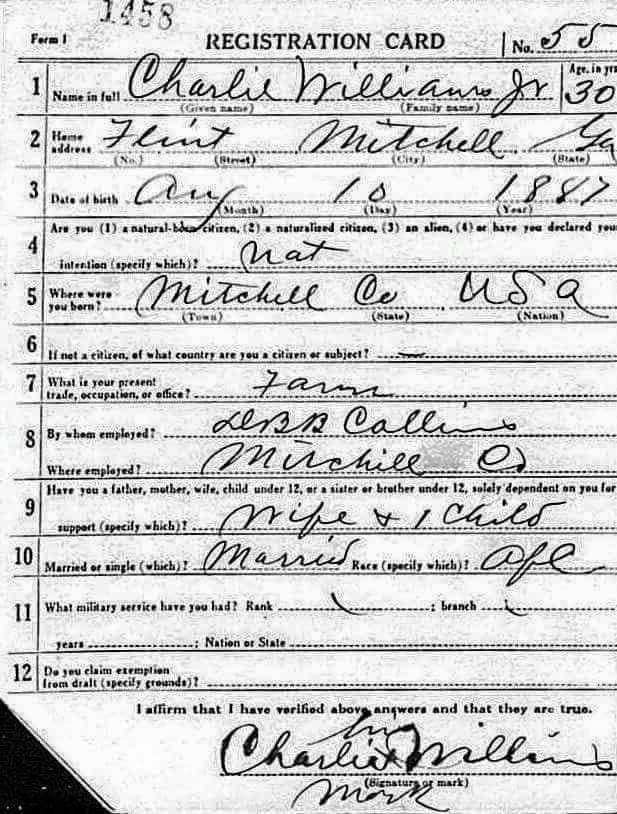 1458
Form 1 REGISTRATION CARD No. 55
1 Name in full Charlie Williams Jr Age, in yrs 30
(Given name) (Family name)
2 Home address Flint Mitchell Ga
(No.) (Street) (City) (State)
3 Date of birth Aug 10 1887
(Month) (Day) (Year)
Are you (1) a natural-born citizen, (2) a naturalized citizen, (3) an alien, (4) or have you declared your
4 intention (specify which)? Nat
5 Where were you born? Mitchell Co USA
(Town) (State) (Nation)
6 If not a citizen, of what country are you a citizen or subject?
7 What is your present trade, occupation, or office? Farm
8 By whom employed? Collins
Where employed? Mitchell Co
9 Have you a father, mother, wife, child under 12, or a sister or brother under 12, solely dependent on you for
support (specify which)? Wife + 1 child
10 Married or single (which)? Married Race (specify which)?
11 What military service have you had? Rank ; branch
years ; Nation or State
12 Do you claim exemption
from draft (specify grounds)?
I affirm that I have verified above answers and that they are true.
his
Charlie x Williams
(Signature or mark)
mark